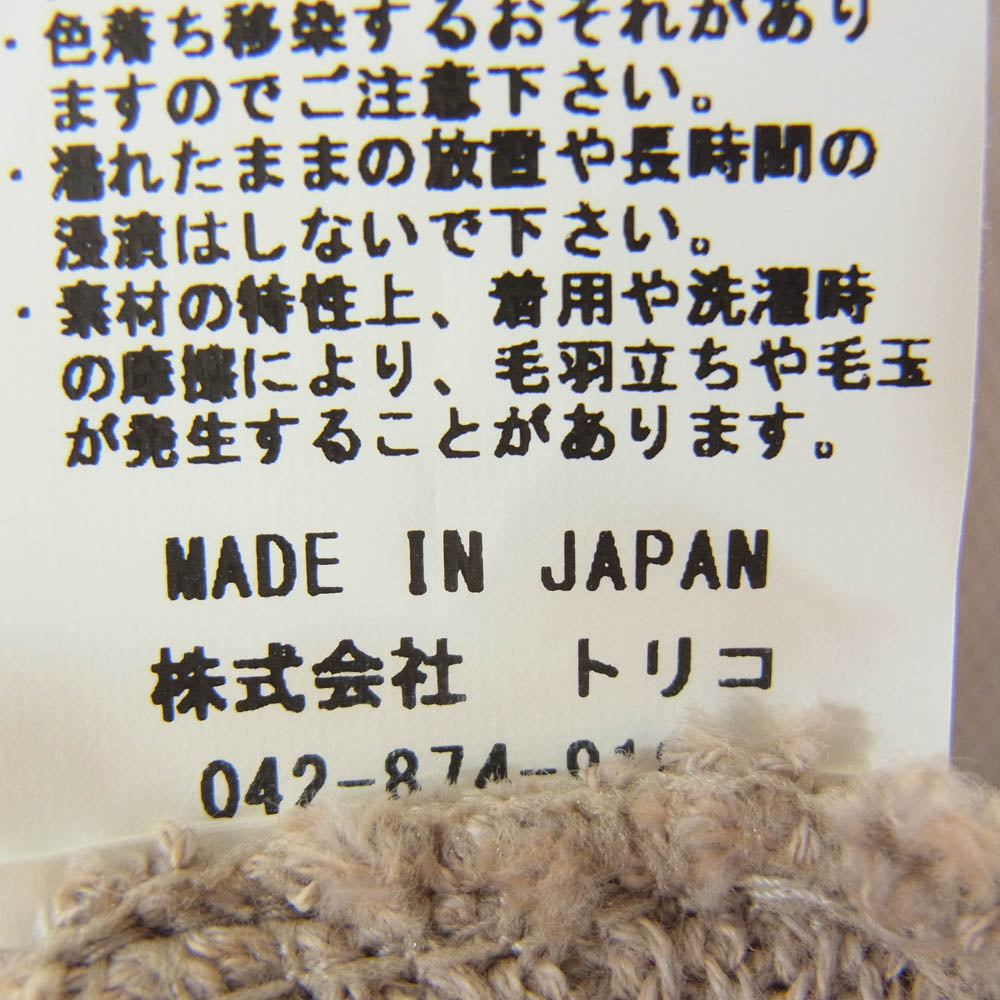 ・色落ち移染するおそれがあり
ますのでご注意下さい。
・濡れたままの放置や長時間の
浸漬はしないで下さい。
・素材の特性上、着用や洗濯時
の摩擦により、毛羽立ちや毛玉
が発生することがあります。
MADE IN JAPAN
株式会社 トリコ
042-874-91